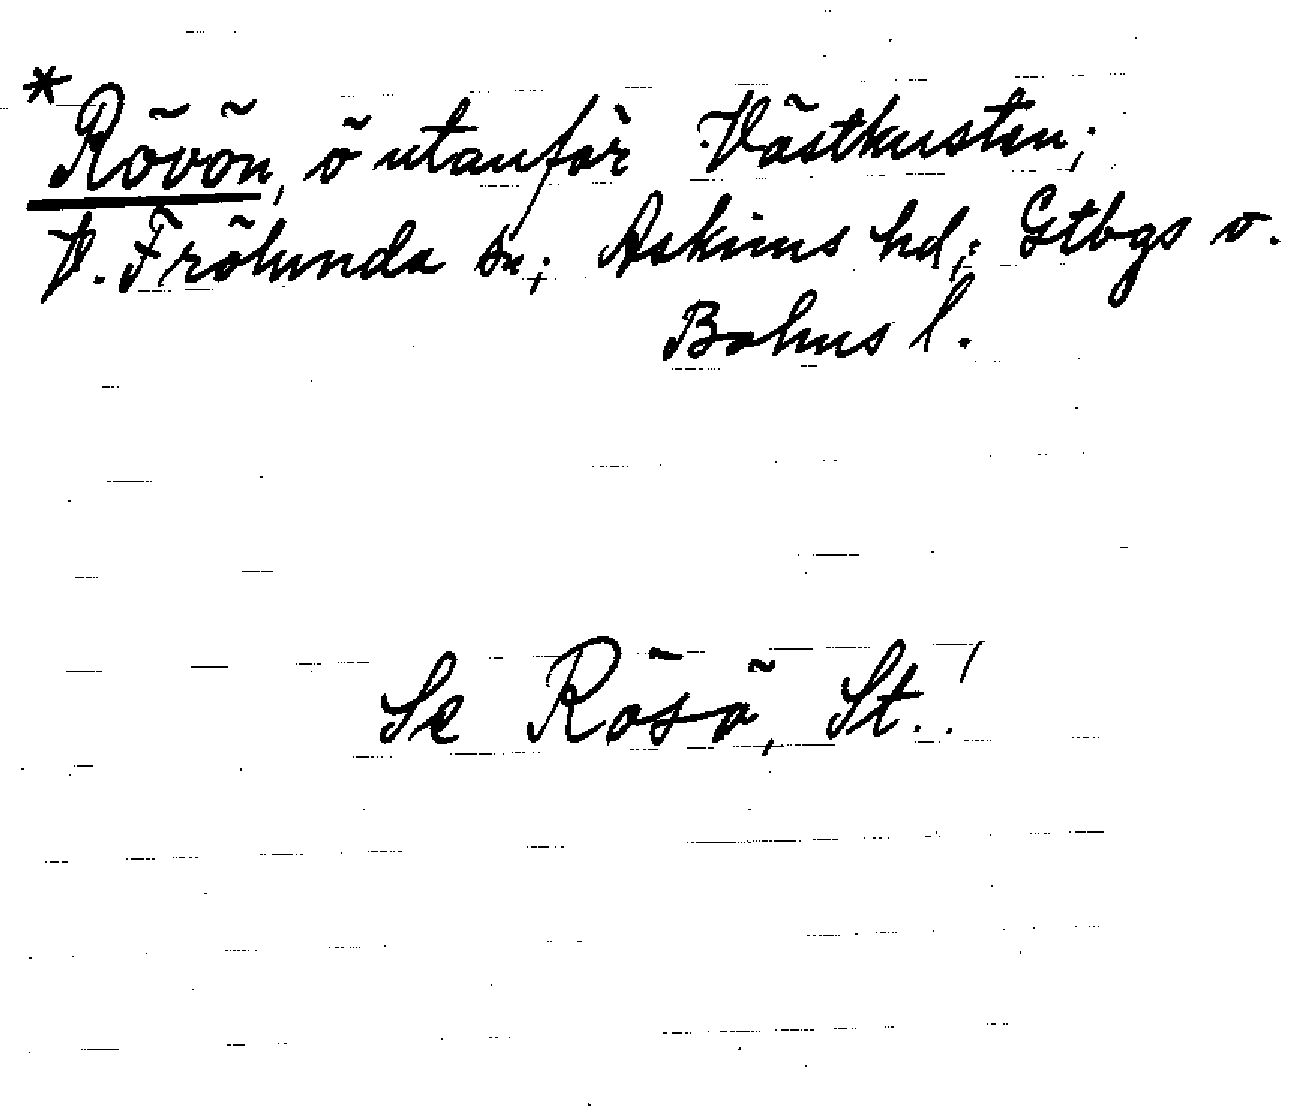 * Rövön, ö utanför Västkusten;
V. Frölunda sn; Askims hd; Gtbgs o.
Bohus l.
Se Rösö, St.!